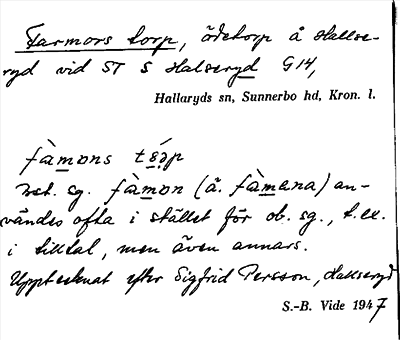 Farmors torp, ödetorp å Hallse-
ryd vid ST S Halseryd G 14,
Hallaryds sn, Sunnerbo hd, Kron. l.
fàmons
best. sg. fàmon (ä. fàmana) an-
vändes ofta i stället för ob. sg., t.ex.
i tilltal, men även annars.
Upptecknat efter Sigfrid Persson, Hallseryd
S.-B. Vide 1947